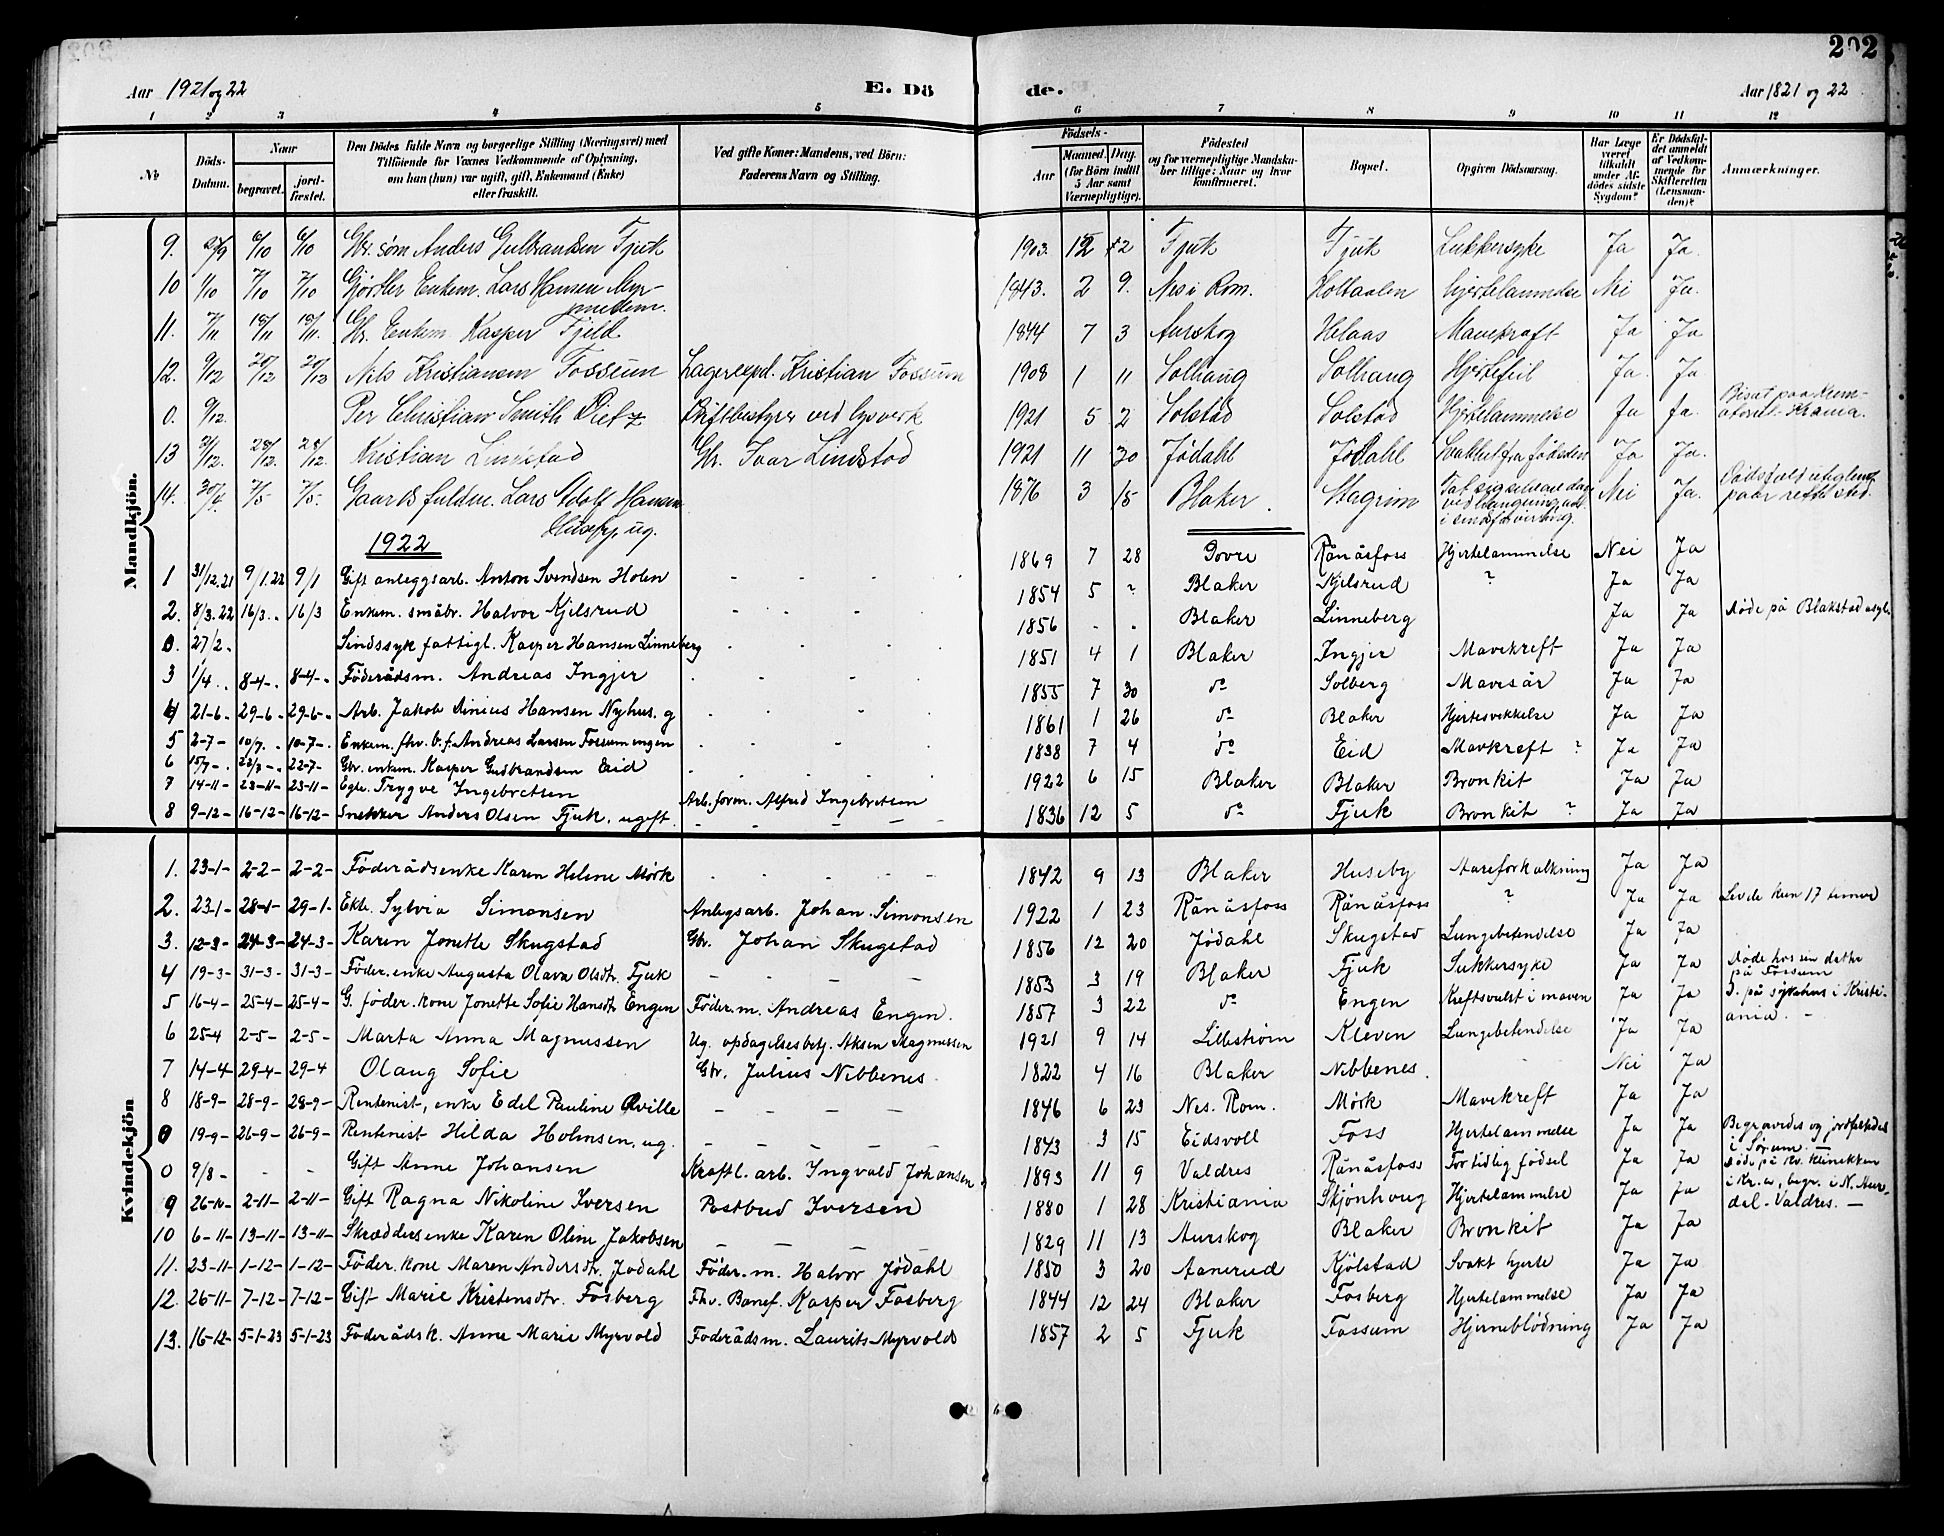 202
Aar 1921 og 22 E. Dö de. Aar 1821 og 22
1 2 3 4 5 6 7 8 9 10 11 12
No Döds-Datum. Naar begravet. jordfæstet. Den Dödes fulde Navn og borgerlige Stilling (Næringsvei) med Tilföiende for Voxnes Vedkommende af Oplysning, om han (hun) var ugift, gift, Enkemand (Enke) eller fraskilt. Ved gifte Koner: Mandens, ved Börn: Faderens Navn og Stilling. Födsels- Aar Maaned. Dag. (for Börn indtil 5 Aar samt Værnepligtige). Födested og for værnepligtige Mandskaber tillige: Naar og hvor konfirmeret. Bopæl. Opgiven Dödsaarsag. Har Læge været tilkaldt under Afdödes sidste Sygdom? Er Dödsfaldet anmeldt af Vedkommende for Skifteretten (Lensmanden)? Anmærkninger.
Mandkjön.
9. 27/9 6/10 6/10 Gbr. søn Anders Gulbrandsen Fjuk 1903. 12 Fjuk Fjuk Sukkersyke Ja Ja.
10 1/10 7/10 7/10 Gjørtler Enkem. Lars Hansen 1843. 2 9. Nes i Rom. Holtaalen Hjertelammelse Nei Ja.
11. 7/11 19/11 19/11. Gbr. Enkem. Kasper Fjeld. 1844 7 3 Aurskog Helaas Mavekræft Ja Ja
12. 9/12 20/12 20/12 Nils Kristiansen Fossum Lagerexpd. Kristian Fossum 1908 1 11 Solhaug Solhaug Hjertefeil Ja. Ja
0. 9/12. Per Christian Smith Dietz Driftbestyrer ved lysverk 1921 5 2 Solstad Solstad Hjertelammelse Ja Ja. Bisat paa Krematoriet Krania.
13 21/12. 28/12. 28/12. Kristian Lindstad Gbr. Ivar Lindstad 1921 11 30 Jödahl Jödahl Svakhet fra fødselen Ja Ja.
14. 30/4. 7/5 7/5. Gaards fuldm. Lars Adolf Hansen Huseby, ug. 1876 3 15 Blaker. Stagrim Tat sig selv av dage ved hængning i sindsforvirring. Nei Ja.
1922
1 31/12.21 9/1.22 9/1 Gift anleggsarb. Anton Svendsen Holen - - - - 1869 7 28 Dovre Rånåsfoss Hjertelammelse Nei Ja
2. 8/3.22 16/3.. 16/3 Enkem. småbr. Halvor Kjelsrud - - - - 1854 5 ? Blaker Kjelsrud ? Ja Ja
0. 27/2 - Sindssyk fattigl. Kasper Hansen Linneberg - - - 1856 - - Blaker Linneberg Ja Ja Døde på Blakstad asyl.
3 1/4.. 8-4-. 8-4-. Föderådsm. Andreas Ingjer - - - - 1851 4 1 Blaker Ingjer Mavekreft Ja Ja
4 21-6- 29-6- 29-6- Arb. Jakob Dinius Hansen Nyhus. g - - - - 1855 7 30 do Solberg Mavesår Ja Ja
5 2-7- 10/7. - 10-7-. Enkem. fhv. b.f. Andreas Larsen Fossumengen - - - - 1861 1 26 do Blaker Hjertesvekkelse Ja Ja
6 15/7-. 22/7-. 22-7- Gbr. enkem. Kasper Gudbrandsen Eid - - - - 1838 7 4 do Eid Mavkreft ? Ja Ja
7 14-11- 23-11- 23-11- Egte. Trygve Ingebretsen Arb. form. Alfred Ingebretsen 1922 6 15 Blaker Blaker Bronkit Ja Ja
8 9-12- 16-12- 16-12- Snekker Anders Olsen Fjuk, ugift. - - - - 1836 12 5 do Fjuk Bronkit ? Ja Ja
Kvindekjön
1. 23-1- 2-2- 2-2- Föderådsenke Karen Helene Mörk - - - - - 1842 9 13 Blaker Huseby Aareforkalkning Ja Ja
2. 23-1- 28-1- 29-1- Ekte. Sylvia Simonsen Anlegsarb. Johan Simonsen 1922 1 23 Rånåsfoss Rånåsfoss ? Ja Ja Levde kun 17 timer
3. 12-3- 24-3- 24-3- Karen Jonette Skugstad Gbr. Johan Skugstad 1856 12 20 Jödahl Skugstad Lungebetendelse Ja Ja
4 19-3- 31-3- 31-3- Föder. enke Augusta Olava Olsdtr. Fjuk - - - 1853 3 19 Blaker Fjuk Sukkersyke Ja Ja Døde hos sin datter på Fossum
5 16-4- 25-4- 25-4- G. föder. kone Jonette Sofie Hansdtr. Engen Föder. m. Andreas Engen. 1857 3 22 do Engen Kreftsvulst i maven Ja Ja D. på sykehus i Kristiania. -
6 25-4 2-5- 2-5- Marta Anna Magnussen Ug. opdagelsesbetj. Aksen Magnussen 1921 9 14 Lillestrøm Kleven Lungebetendelse Ja Ja
7 14-4- 29-4- 29-4 Olaug Sofie Gbr. Julius Nibbenes. 1822 4 16 Blaker Nibbenes. - Nei Ja
8 18-9- 28-9- 28-9- Rentenist, enke Edel Pauline - - - - 1846 6 23 Nes. Rom. Mörk Mavekreft Ja Ja
0 19-9- 26-9- 26-9- Rentenist Hilda Holmsen, ug. - - - - 1843 3 15 Eidsvoll Foss Hjertelammelse Ja Ja Begravedes og jordfæstedes i Sørum -
0 9/8- - - Gift Anne Johansen Kraftl. arb. Ingvald Johansen 1893 11 9 Valdres Rånåsfoss For tidlig fødsel Ja Ja Døde på Kv. klinikken i Kr.a, begr. i N. Aurdal - Valdres. -
9 26-10- 2-11- 2-11- Gift Ragna Nikoline Iversen Postbud Iversen 1880 1 28 Kristiania Skjönhoug Hjertelammelse Ja Ja
10 6-11- 13-11- 13-11- Skreddersenke Karen Oline Jakobsen - - - - 1829 11 13 Aurskog Blaker Bronkit Ja Ja
11. 23-11- 1-12- 1-12- Föder. kone Maren Andersdtr. Jödahl Föder. m. Halvor Jödahl 1850 3 20 Aanerud Kjölstad Svakt hjerte Ja Ja
12. 26-11- 7-12- 7-12- Gift Marie Kristensdtr. Fosberg Fhv. Banef. Kasper Fosberg 1844 12 24 Blaker Fosberg Hjertelammelse Ja Ja
13. 16-12- 5-1-23 5-1-23 Föderådsk. Anne Marie Myrvold Foderådsm. Laurits Myrvold 1857 2 5 Fjuk Fossum Hjerneblödning Ja Ja